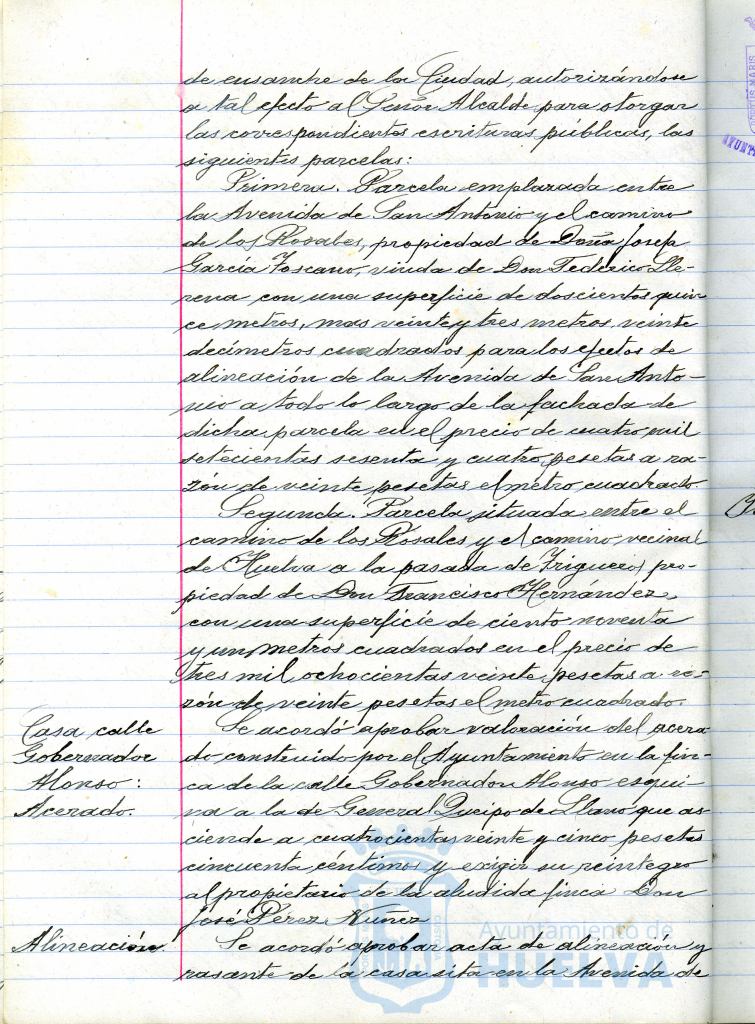 de ensanche de la Ciudad, autorizándose
a tal efecto al Señor Alcalde para otorgar
las correspondientes escrituras públicas, las
siguientes parcelas:
Primera. Parcela emplazada entre
la Avenida de San Antonio y el camino
de los Rosales, propiedad de Doña Josefa
García Toscano, viuda de Don Federico Lle-
rena con una superficie de doscientos quin
ce metros, mas veinte y tres metros, veinte
decímetros cuadrados para los efectos de
alineación de la Avenida de San Anto-
nio a todo lo largo de la fachada de
dicha parcela en el precio de cuatro mil
setecientas sesenta y cuatro pesetas a ra-
zón de veinte pesetas el metro cuadrado
Segunda. Parcela situada entre el
camino de los Rosales y el camino vecinal
de Huelva a la pasada de Trigueros, pro-
piedad de Don Francisco Hernández,
con una superficie de ciento noventa
y un metros cuadrados en el precio de
tres mil, ochocientas veinte, pesetas a ra-
zón de veinte pesetas el metro cuadrado.
Casa calle
Gobernador
Alonso:
Acerado.
Se acordó aprobar valoración del acera
do construido por el Ayuntamiento en la fin-
ca de la calle Gobernador Alonso esqui-
na a la de General Queipo de Llano que as
ciende a cuatrocientas veinte y cinco pesetas
cincuenta céntimos y exigir su reintegro
al propietario de la aludida finca Don
José Pérez Nuñez
Alineación.
Se acordó aprobar acta de alineación y
rasante de la casa sita en la Avenida de
Ayuntamiento de
HUELVA